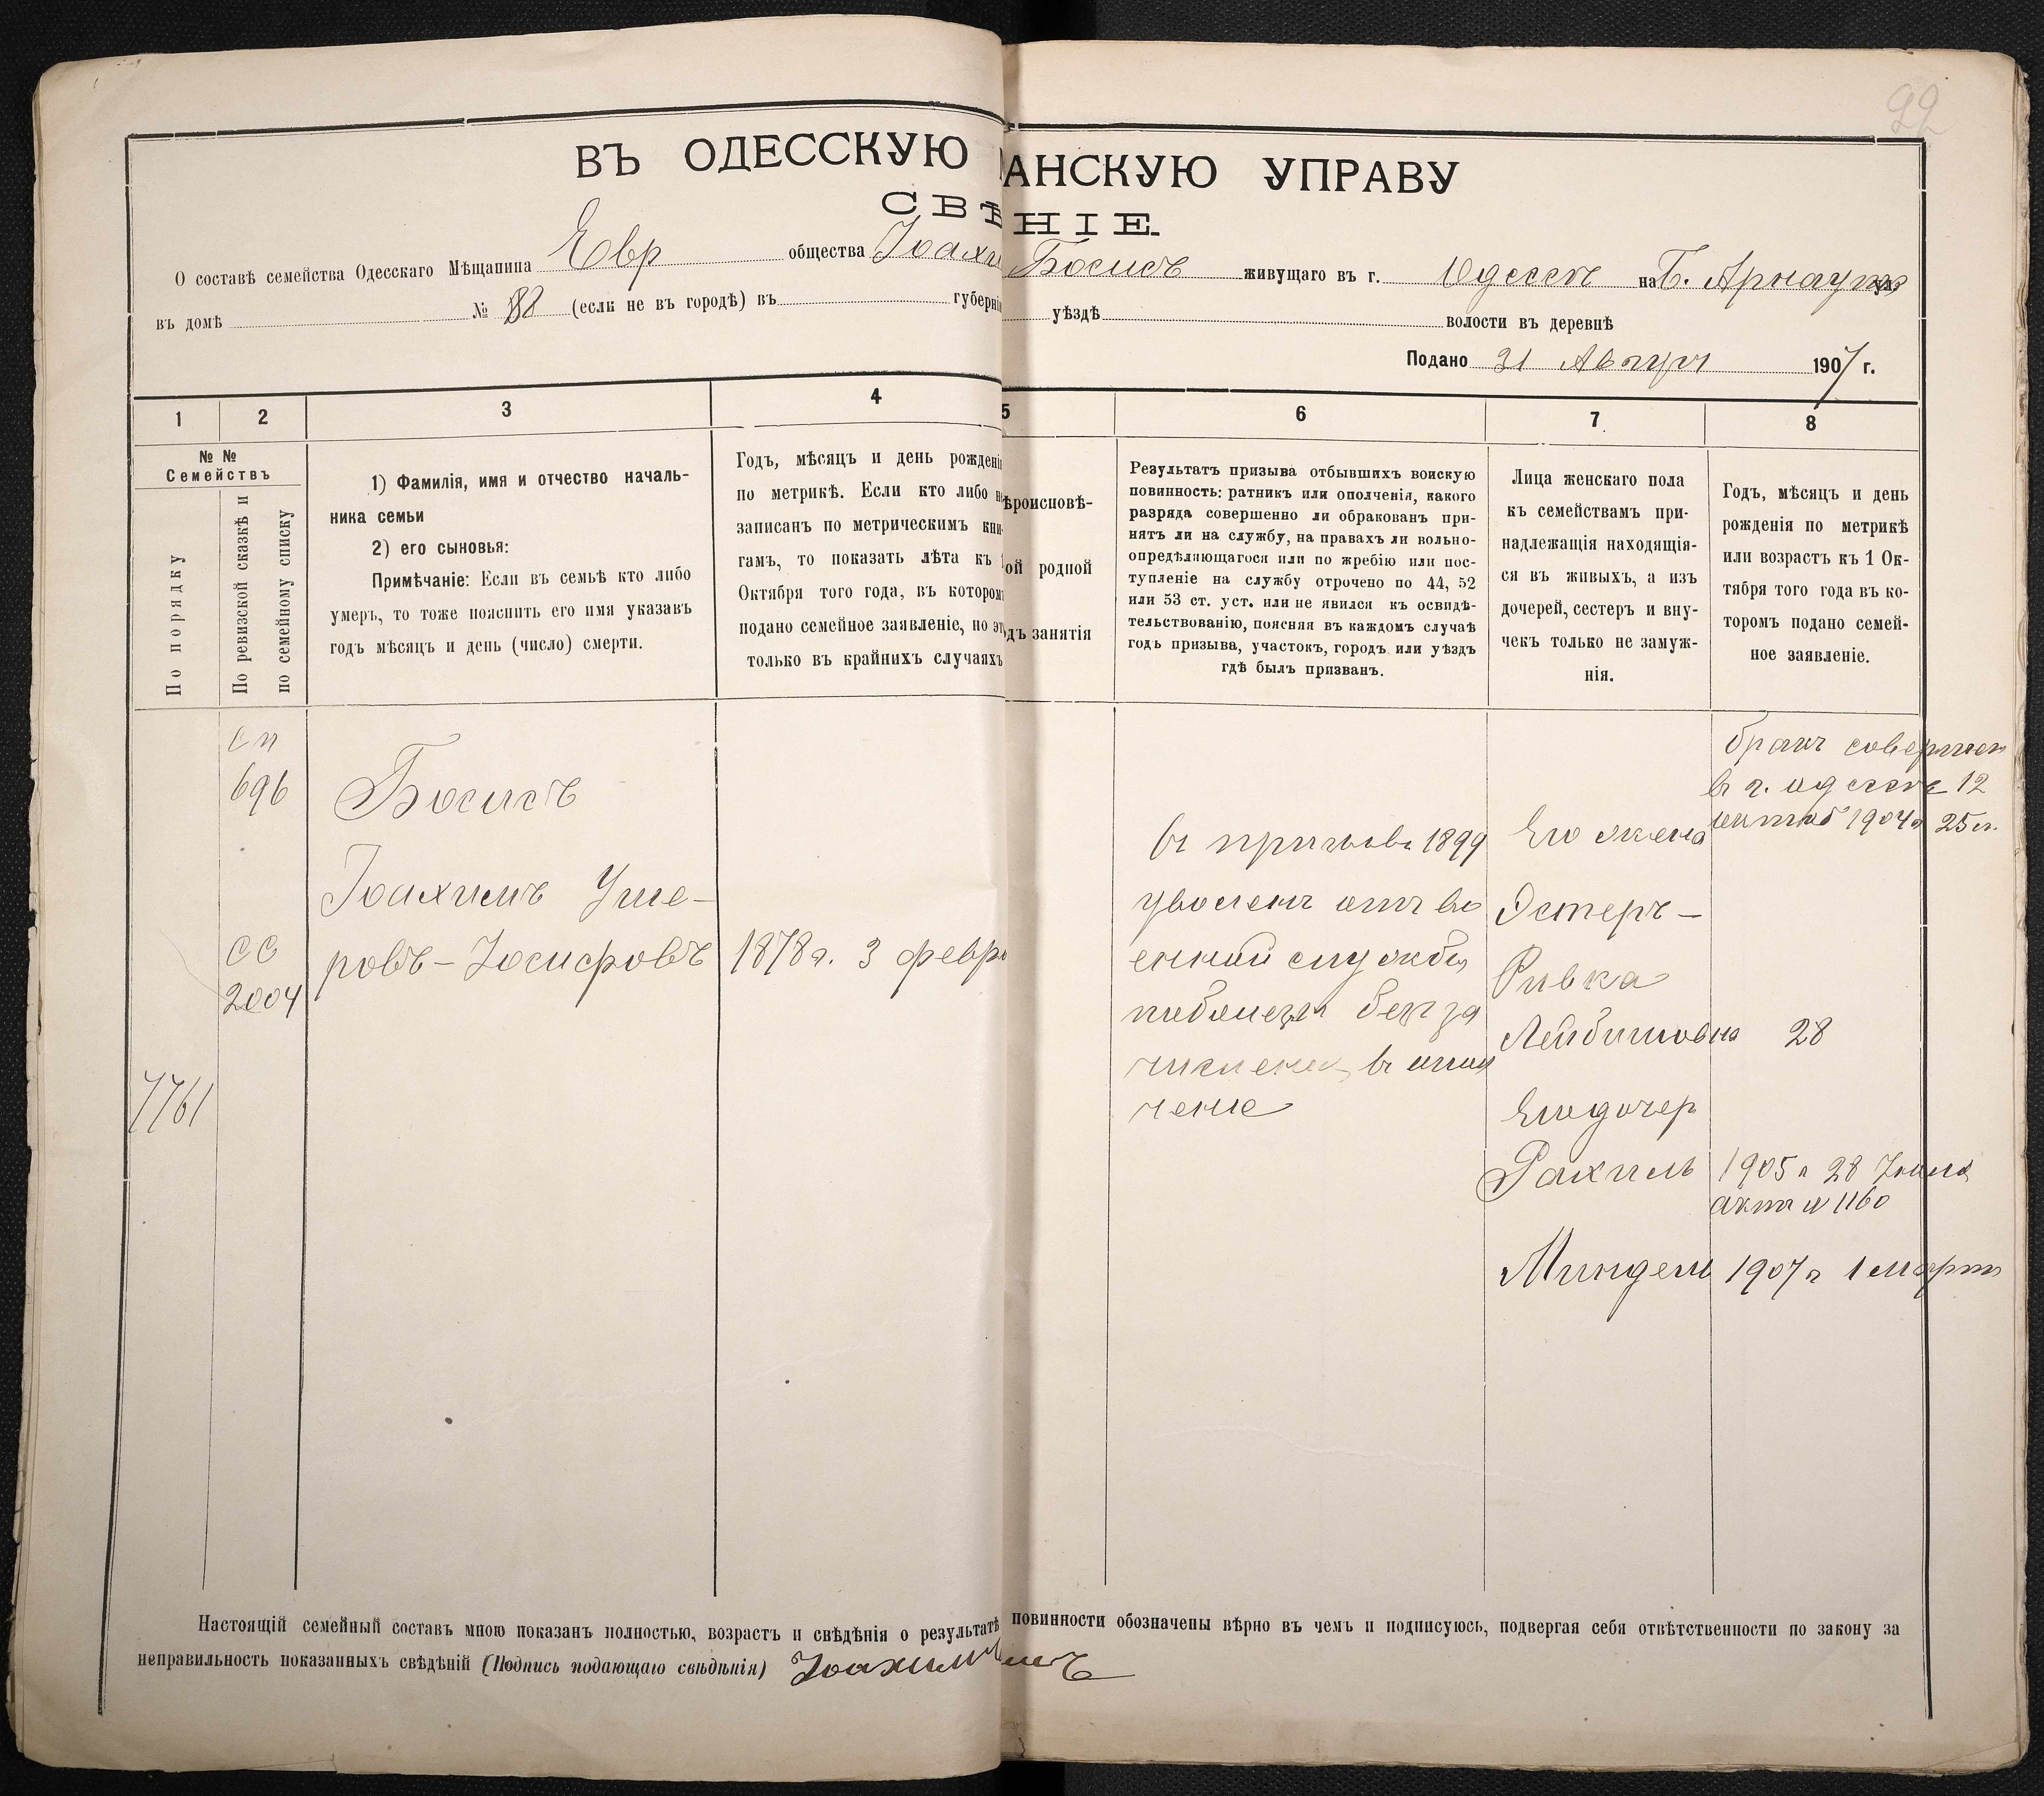 92
ВЪ ОДЕССКУЮ АНСКУЮ УПРАВУ
СВѢ НІЕ.
О составѣ семейства Одесскаго Мѣщанина Евр общества Іоахи Босисъ живущаго въ г. Одессѣ на Б. Арнаутс ул.
въ домѣ № 88 (если не въ городѣ) въ губерні уѣздѣ волости въ деревнѣ
Подано 31 Август 1907 г.
1 2 3 4 5 6 7 8
№ №
Семействъ
По порядку
По ревизской сказкѣ и
по семейному списку
1) Фамилія, имя и отчество началь-
ника семьи
2) его сыновья:
Примѣчаніе: Если въ семьѣ кто либо
умеръ, то тоже пояснить его имя указавъ
годъ мѣсяцъ и день (число) смерти.
Годъ, мѣсяцъ и день рождені
по метрикѣ. Если кто либо н
записанъ по метрическимъ кни-
гамъ, то показать лѣта къ
Октября того года, въ котором
подано семейное заявленіе, но эт
только въ крайнихъ случаяхъ
ѣроисповѣ-
ой родной
дъ занятія
Результатъ призыва отбывшихъ воискую
повинность: ратникъ или ополченія, какого
разряда совершенно ли обракованъ при-
нятъ ли на службу, на правахъ ли вольно-
опредѣляющагося или по жребію или пос-
тупленіе на службу отрочено по 44, 52
или 53 ст. уст. или не явился къ освидѣ-
тельствованію, поясняя въ каждомъ случаѣ
годъ призыва, участокъ, городъ или уѣздъ
гдѣ былъ призванъ.
Лица женскаго пола
къ семействамъ при-
надлежащія находящія-
ся въ живыхъ, а изъ
дочерей, сестеръ и вну-
чекъ только не замуж-
нія.
Годъ, мѣсяцъ и день
рожденія по метрикѣ
или возрастъ къ 1 Ок-
тября того года въ ко-
торомъ подано семей-
ное заявленіе.
сп
696
Босисъ
Іоахимъ Уше-
ровъ-Іосифовъ
1878г. 3 февра
СС
2004
7761
въ призывъ 1899
уволенъ отъ во
енной службы
навсегда безъ за
численія въ опол
ченіе
Его жена
Эстеръ-
Ривка
Лейбишовна 28
бракъ совершен
в г. Одессѣ 12
октяб 1904г 25 л.
Его дочер
Рахиль 1905 г 28 Іюня
актъ № 1160
Миндель 1907 г 1 марта
Настоящій семейный составъ мною показанъ полностью, возрастъ и свѣдѣнія о результатѣ повинности обозначены вѣрно въ чемъ и подписуюсь, подвергая себя отвѣтственности по закону за
неправильность показанныхъ свѣдѣній (Подпись подающаго свѣдѣнія) Іоахим